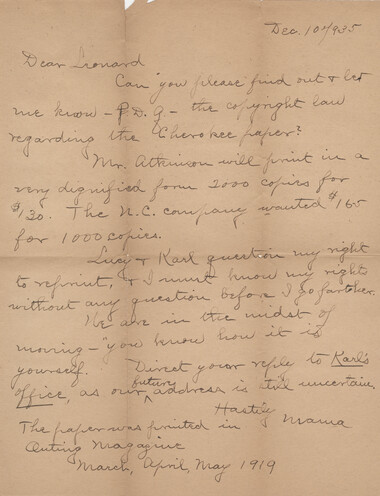 Dec. 10th/935
Dear Leonard
Can you please find out & let
me know - P.D.Q - the copyright law
regarding the Cherokee paper?
Mr. Atkinson will print in a
very dignified form 2000 copies for
$130. The N.C. company wanted $165
for 1000 copies.
Lucy & Karl question my right
to reprint, & I must know my rights
without any question before I go farther.
We are in the midst of
moving - "you know how it is
yourself. Direct your reply to Karl's
office, as our future address is still uncertain.
Hastily
Mama
The paper was printed in
Outing Magazine
March, April, May 1919